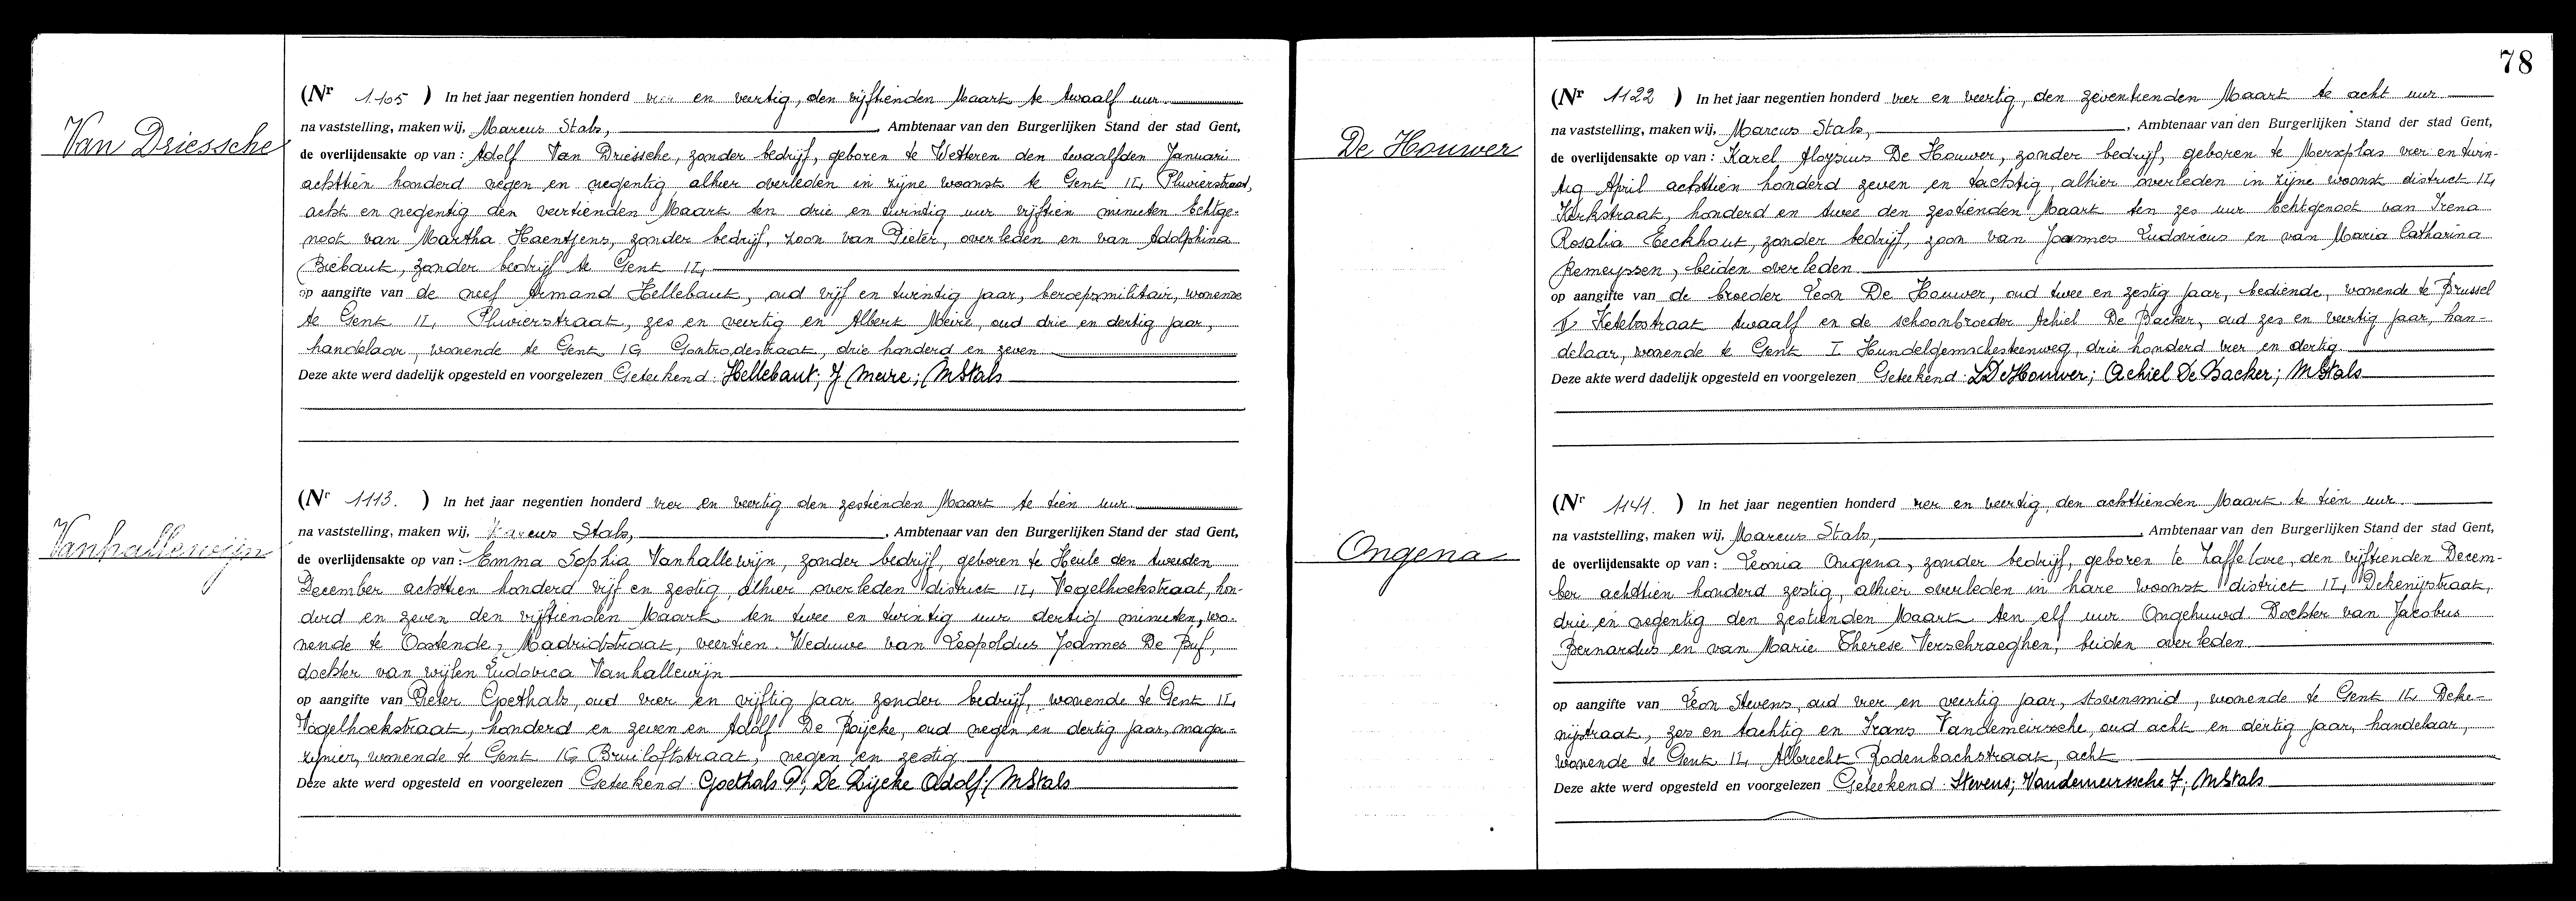 Van Driessche
(Nr 1.105 ) In het jaar negentien honderd vier en veertig, den vijftienden Maart te twaalf uur
na vaststelling, maken wij, Marcus Stals, , Ambtenaar van den Burgerlijken Stand der stad Gent,
de overlijdensakte op van : Adolf Van Driessche, zonder bedrijf, geboren te Wetteren den twaalfden Januari
achttien honderd negen en negentig, alhier overleden in zijne woonst te Gent II, Pluvierstraat,
acht en negentig den veertienden Maart ten drie en twintig uur vijftien minuten Echtge-
noot van Martha Haentjens, zonder bedrijf, zoon van Pieter, overleden en van Adolphina
Biebaut, zonder bedrijf te Gent II,
op aangifte van de neef Armand Hellebaut, oud vijf en twintig jaar, beroepsmilitair, wonende
te Gent II, Pluvierstraat, zes en veertig en Albert Meire, oud drie en dertig jaar,
handelaar, wonende te Gent IG Gontrodestraat, drie honderd en zeven
Deze akte werd dadelijk opgesteld en voorgelezen Geteekend: Hellebaut; J Meire; MStals
Vanhallewijn
(Nr 1113. ) In het jaar negentien honderd vier en veertig den zestienden Maart te tien uur
na vaststelling, maken wij, Marcus Stals, , Ambtenaar van den Burgerlijken Stand der stad Gent,
de overlijdensakte op van : Emma Sophia Vanhallewijn, zonder bedrijf, geboren te Heule den tweeden
December achttien honderd vijf en zestig, alhier overleden district II, Vogelhoekstraat, hon-
derd en zeven den vijftienden Maart ten twee en twintig uur dertig minuten, wo-
nende te Oostende, Madridstraat, veertien. Weduwe van Leopoldus Joannes De Puf,
dochter van wijlen Ludovica Vanhallewijn
op aangifte van Pieter Goethals, oud vier en vijftig jaar zonder bedrijf, wonende te Gent II,
Vogelhoekstraat, honderd en zeven en Adolf De Buijcke, oud negen en dertig jaar, maga-
zijnier, wonende te Gent IG Bruiloftstraat, negen en zestig
Deze akte werd opgesteld en voorgelezen Geteekend: Goethals P; De Dijcke Adolf; MStals
78
De Houwer
(Nr 1122 ) In het jaar negentien honderd vier en veertig, den zeventienden Maart te acht uur
na vaststelling, maken wij, Marcus Stals, , Ambtenaar van den Burgerlijken Stand der stad Gent,
de overlijdensakte op van : Karel Aloysius De Houwer, zonder bedrijf, geboren te Merxplas vier en twin-
tig April achttien honderd zeven en tachtig, alhier overleden in zijne woonst district II,
Kerkstraat, honderd en twee den zestienden Maart ten zes uur Echtgenoot van Irena
Rosalia Eeckhout, zonder bedrijf, zoon van Joannes Ludovicus en van Maria Catharina
Remeyssen, beiden overleden
op aangifte van de broeder Leon De Houwer, oud twee en zestig jaar, bediende, wonende te Brussel
I, Ketelsstraat twaalf en de schoonbroeder Achiel De Backer, oud zes en veertig jaar, han-
delaar, wonende te Gent I Hundelgemschesteenweg, drie honderd vier en dertig
Deze akte werd dadelijk opgesteld en voorgelezen Geteekend: LDeHouwer; Achiel De Backer; MStals
Ongena
(Nr 1141. ) In het jaar negentien honderd vier en veertig, den achttienden Maart te tien uur
na vaststelling, maken wij, Marcus Stals, , Ambtenaar van den Burgerlijken Stand der stad Gent,
de overlijdensakte op van : Leonia Ongena, zonder bedrijf, geboren te Zaffelare, den vijftienden Decem-
ber achttien honderd zestig, alhier overleden in hare woonst district II, Dekenijstraat,
drie en negentig den zestienden Maart ten elf uur Ongehuwd. Dochter van Jacobus
Bernardus en van Marie Therese Verschraeghen, beiden overleden
op aangifte van Leon Stevens, oud vier en veertig jaar, stovensmid, wonende te Gent II, Deke-
nijstraat, zes en tachtig en Frans Vandemeirssche, oud acht en dertig jaar, handelaar,
wonende te Gent II, Albrecht Rodenbachstraat, acht
Deze akte werd opgesteld en voorgelezen Geteekend: Stevens; Vandemeirssche F; MStals